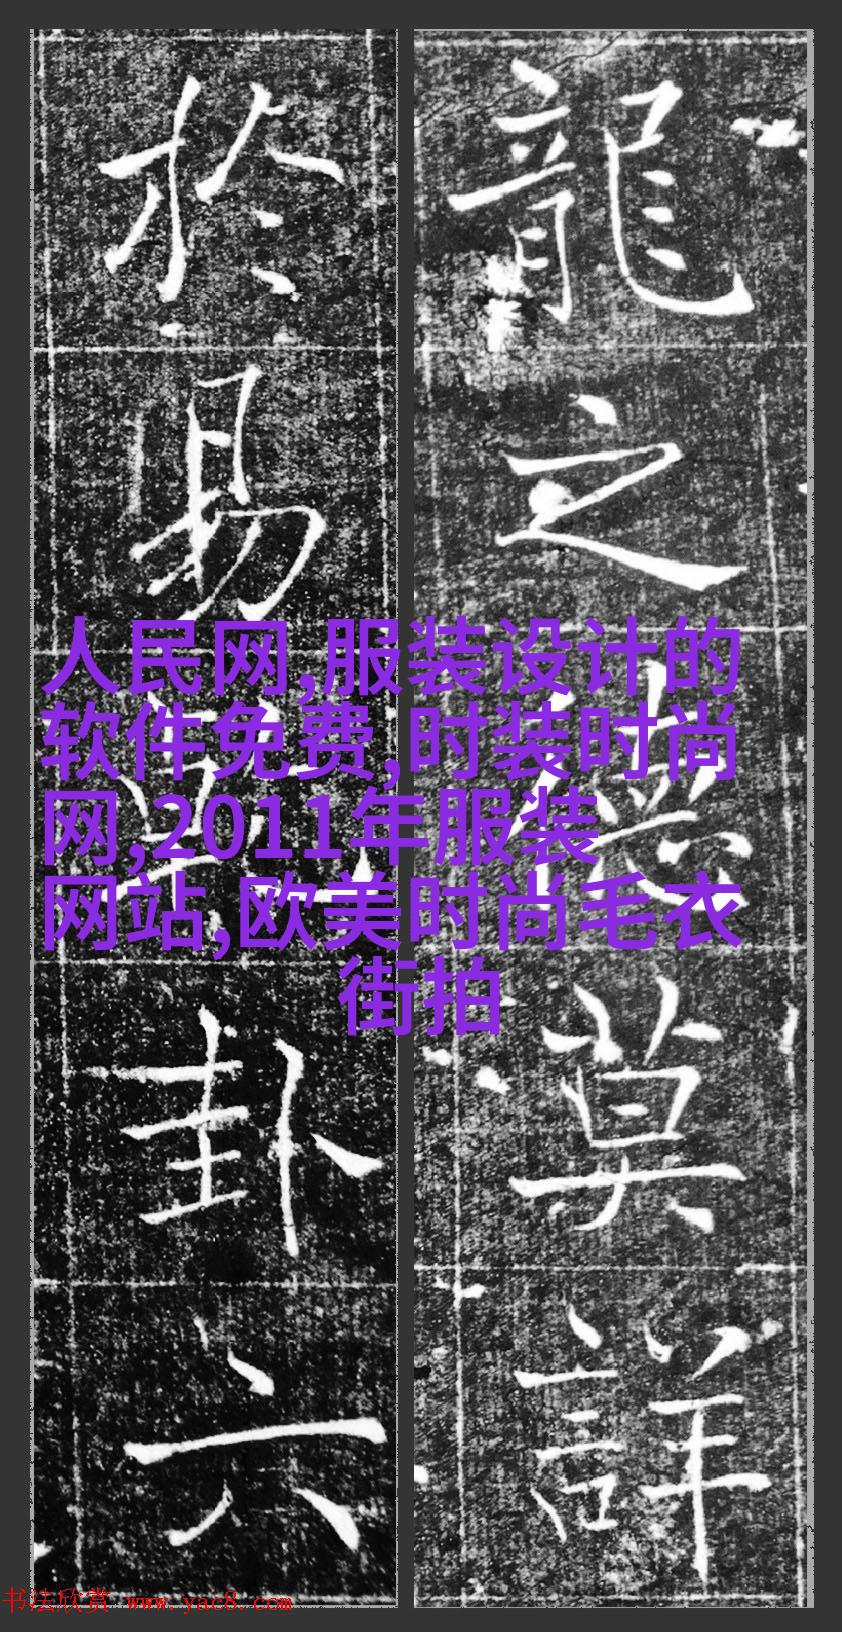 龍之德莫詳
於易卦六
人民网,服装设计的
软件免费,时装时尚
网,2011年服装
网站,欧美时尚毛衣
街拍
书法欣赏 www.yac8.com